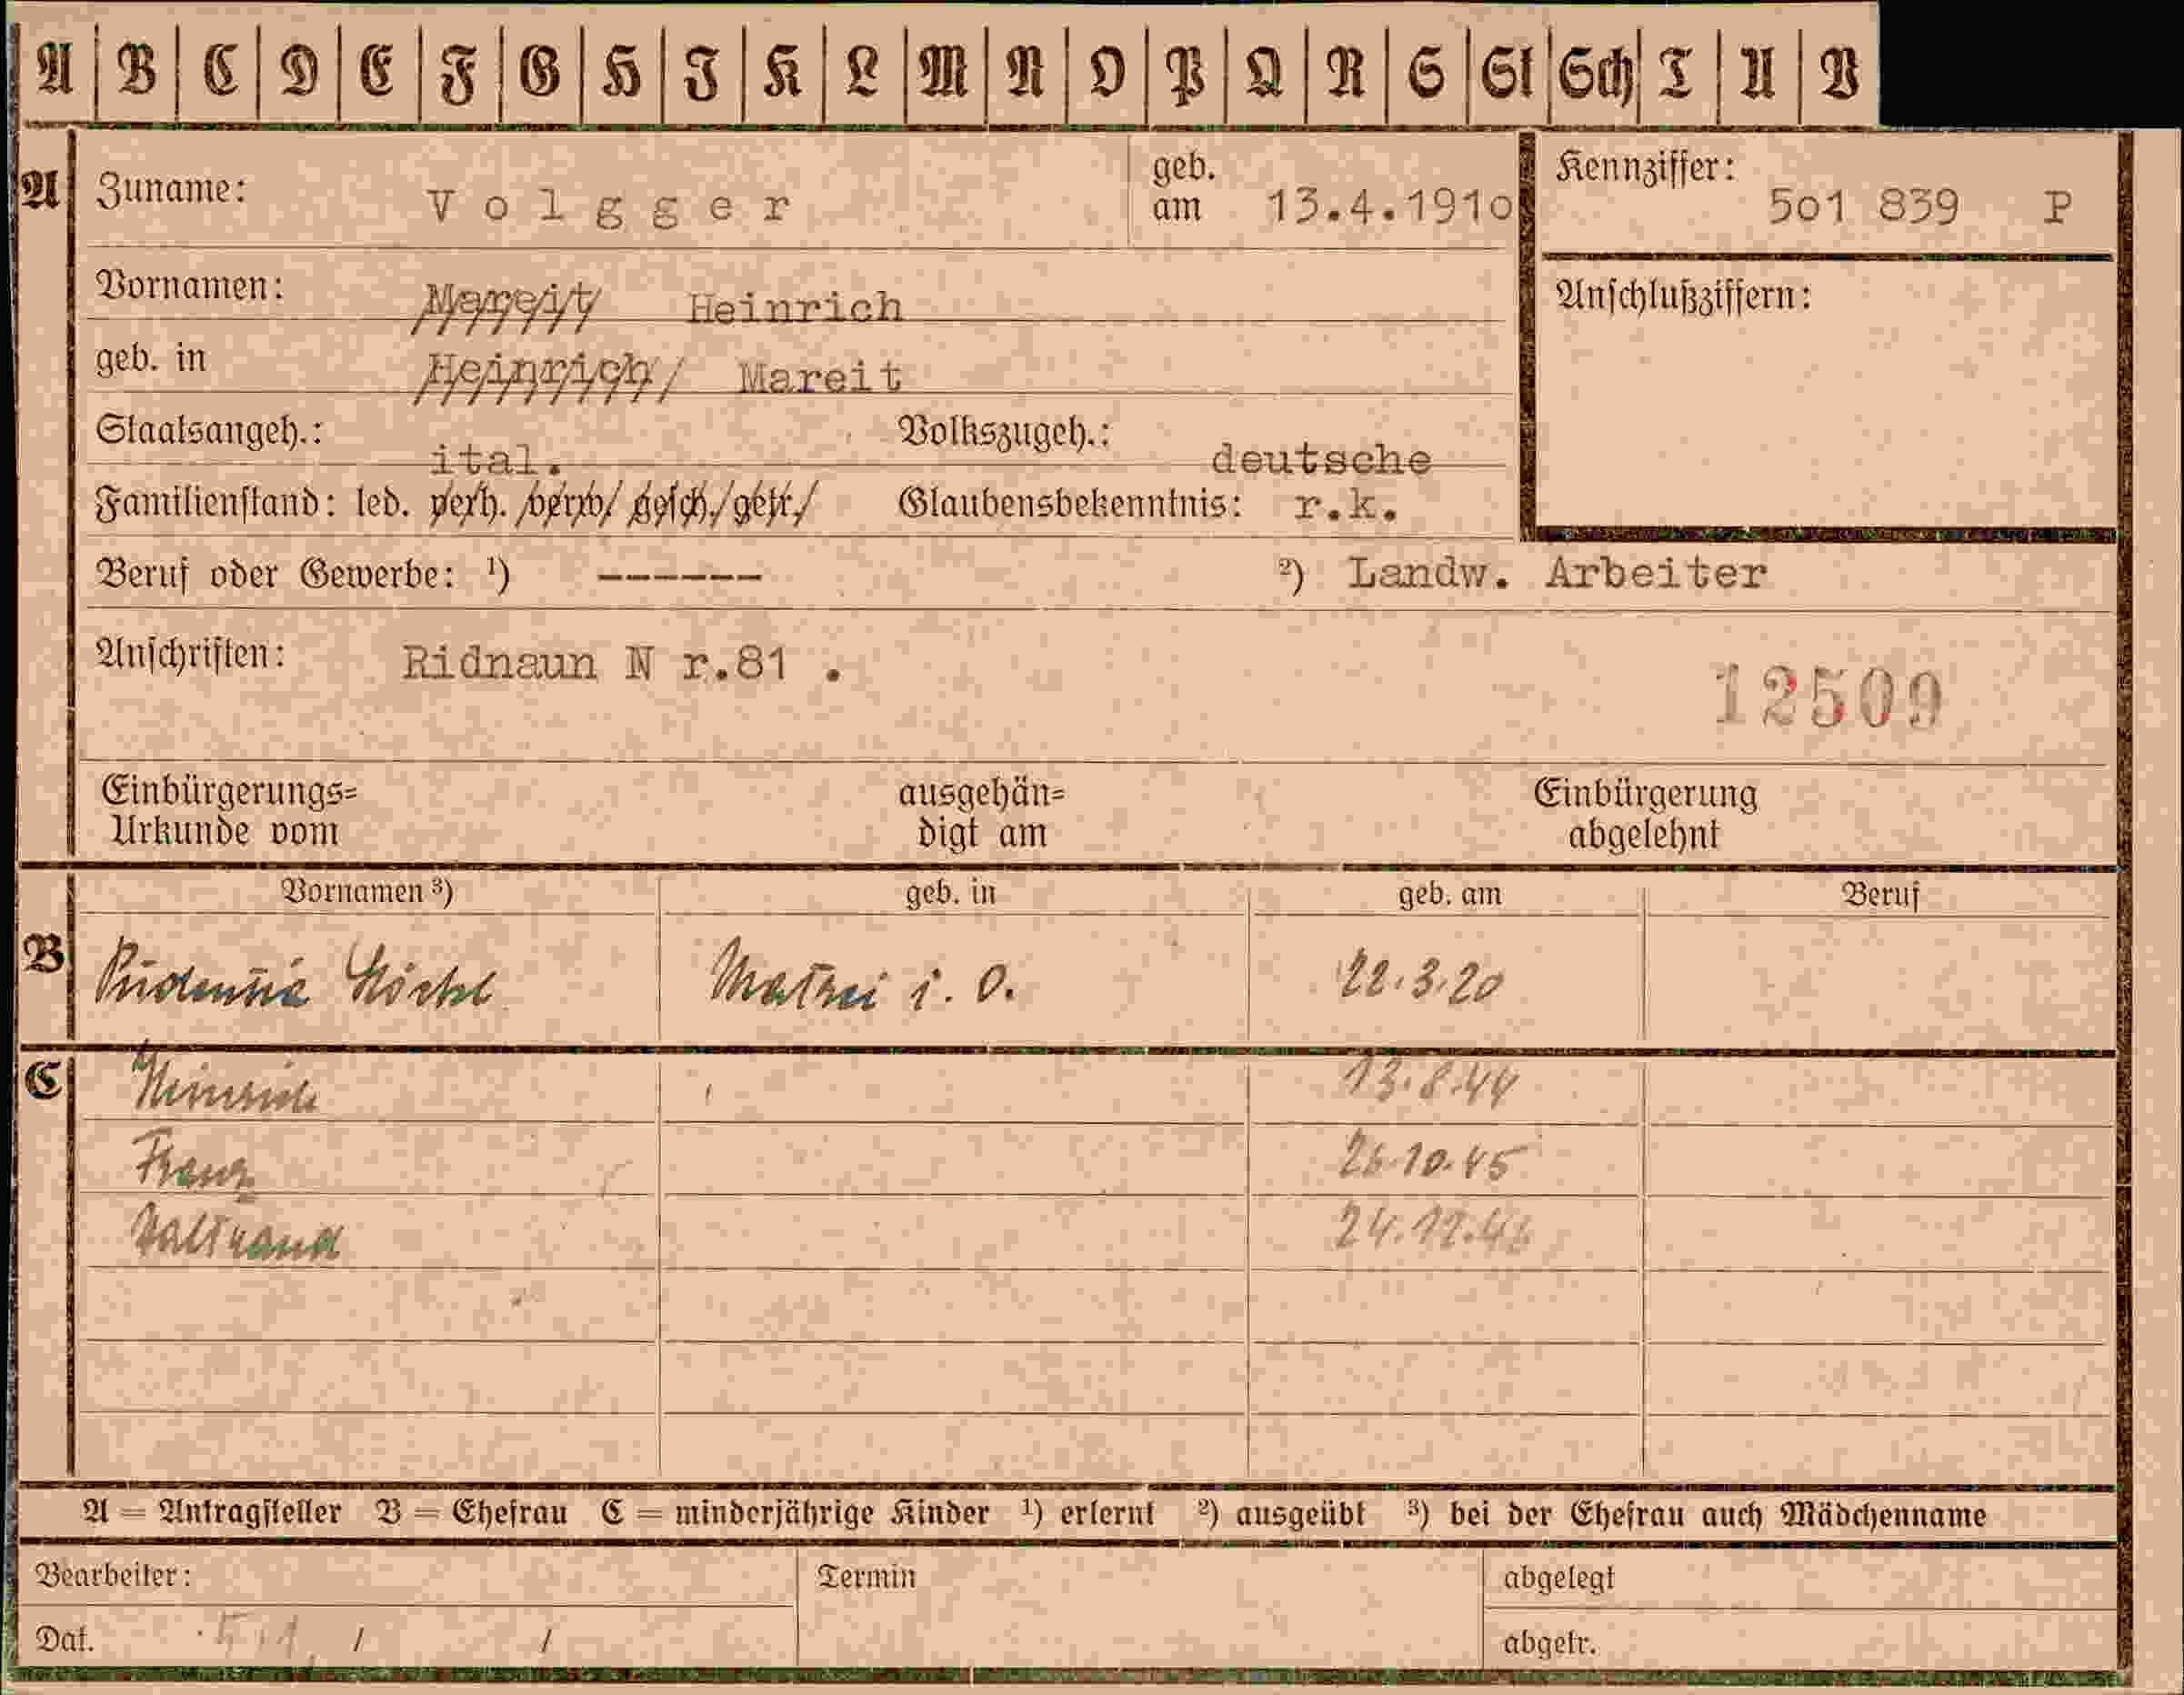 A B C D E F G H I K L M N O P Q R S St Sch T U V
A Zuname: Volgger geb. am 13.4.1910 Kennziffer: 501 839 P
Vornamen: Mareit Heinrich Anschlußziffern:
geb. in Heinrich Mareit
Staatsangeh.: ital. Volkszugeh.: deutsche
Familienstand: led. verh. /verw/ gesch./getr./ Glaubensbekenntnis: r.k.
Beruf oder Gewerbe: ¹) ------ ²) Landw. Arbeiter
Anschriften: Ridnaun N r.81 .
12509
Einbürgerungs= ausgehän= Einbürgerung
Urkunde vom digt am abgelehnt
Vornamen ³) geb. in geb. am Beruf
B Pudentia Matrei i. O. 22.3.20
C Heinrich 13.8.44
Franz 26.10.45
Waltraud 24.12.
A = Antragsteller B = Ehefrau C = minderjährige Kinder ¹) erlernt ²) ausgeübt ³) bei der Ehefrau auch Mädchenname
Bearbeiter: Termin abgelegt
Dat. / / abgetr.